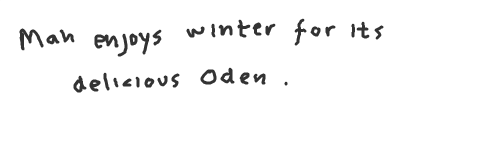 Man enjoys winter for its
delicious Oden.